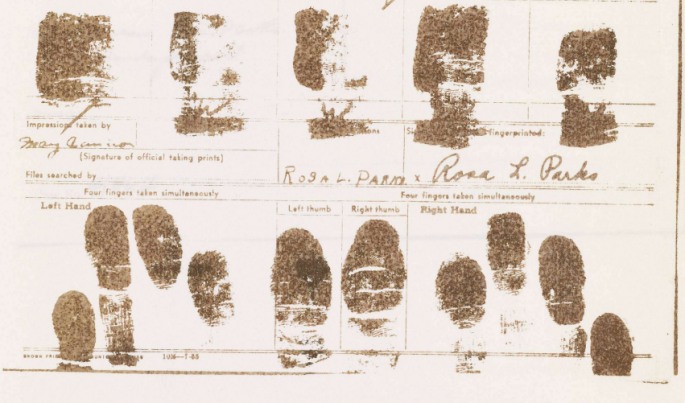 Impressions taken by
(Signature of official taking prints)
fingerprinted:
Files searched by
Rosa L. Parks x Rosa L. Parks
Four fingers taken simultaneously
Four fingers taken simultaneously
Left Hand
Left thumb
Right thumb
Right Hand